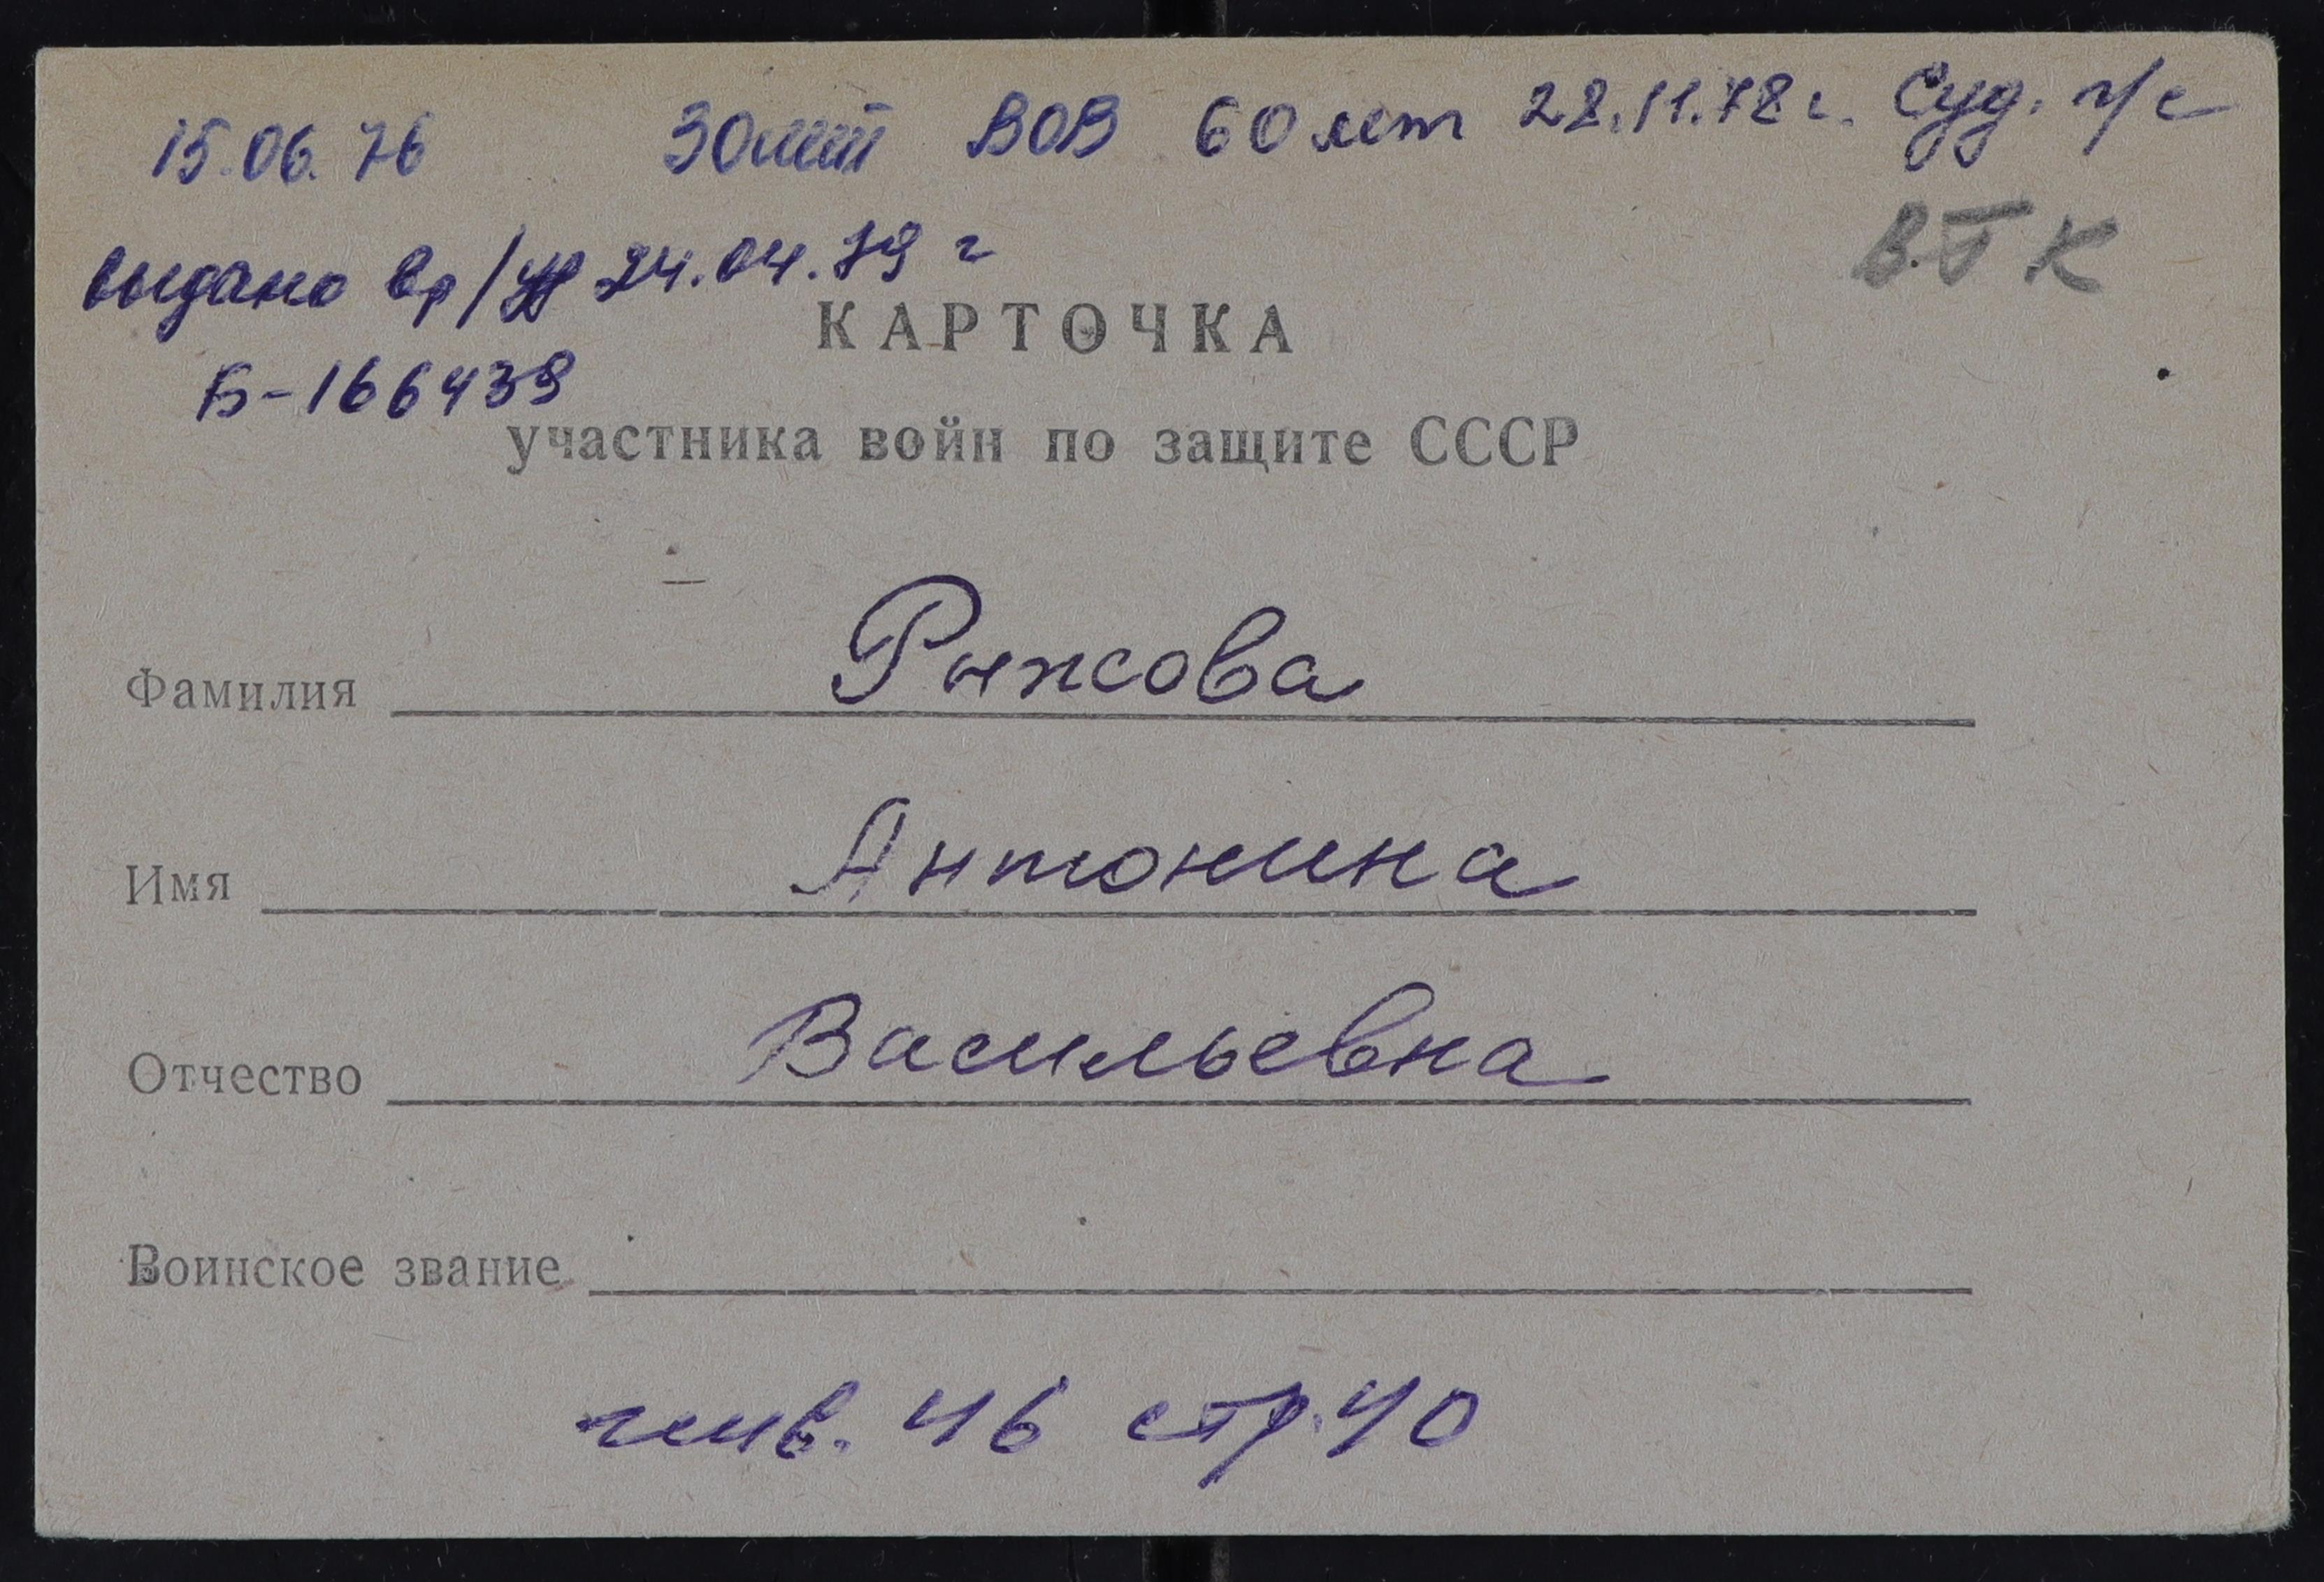 15.06.76 30 лет ВОВ 60 лет 28.11.78 г. Суд. ч/с
В.Т К
выдано 24.04.79 г
КАРТОЧКА
Б-166439
участника войн по защите СССР
Фамилия Рыжова
Имя Антонина
Отчество Васильевна
Воинское звание
инв. 46 стр. 40